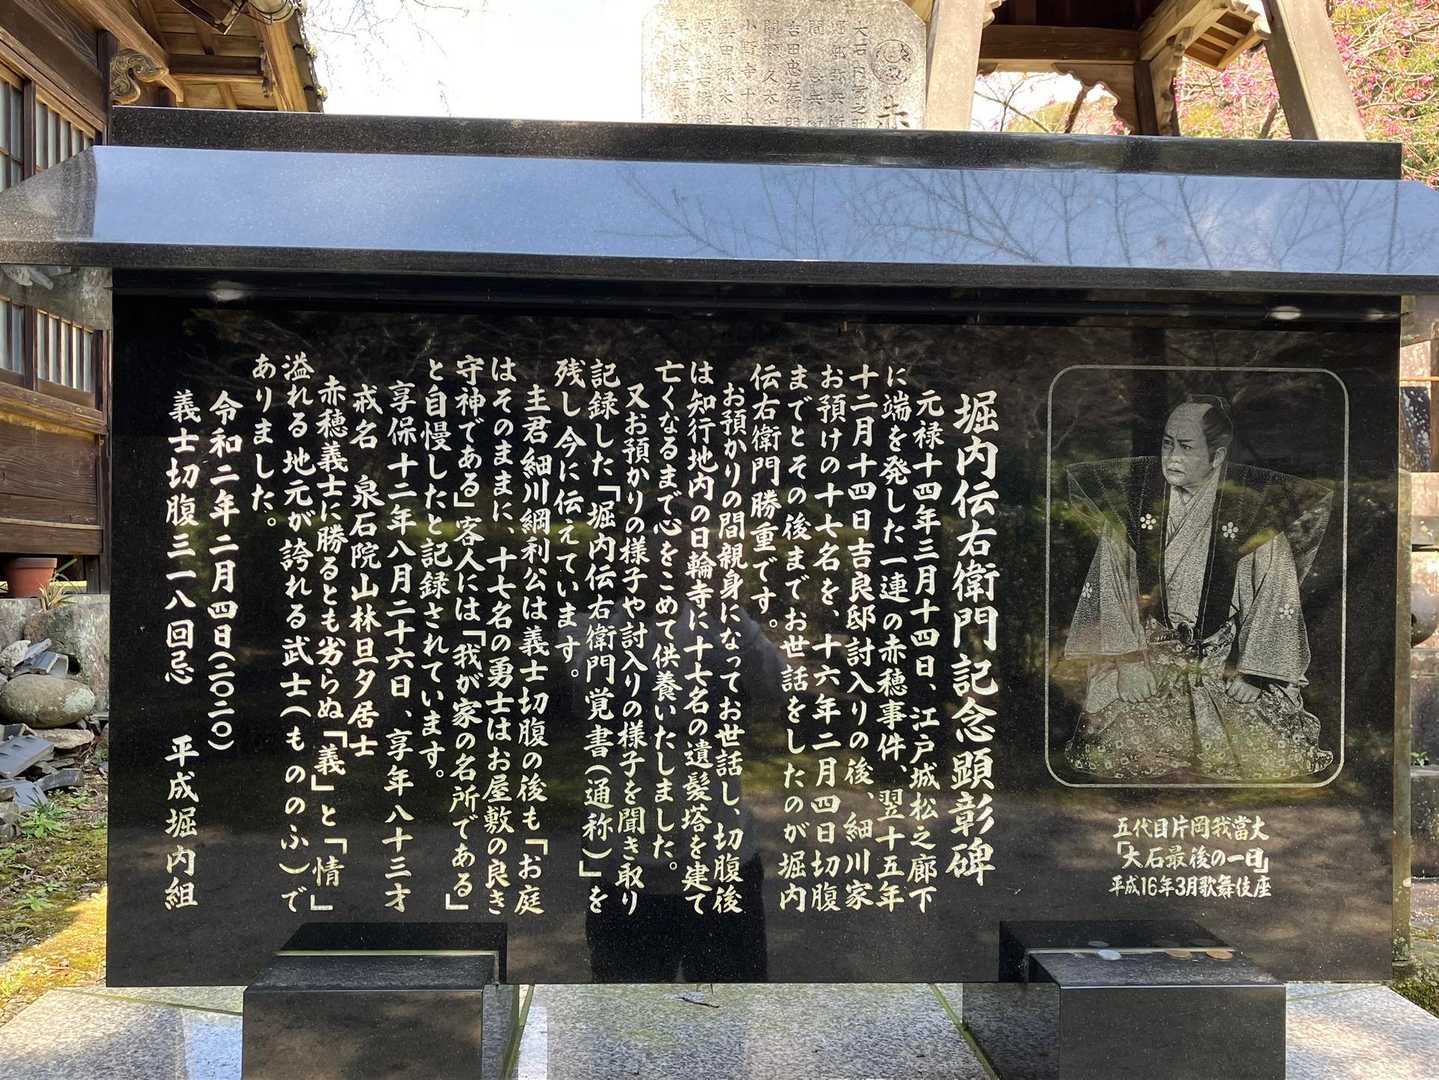 堀内伝右衛門記念顕彰碑
元禄十四年三月十四日、江戸城松之廊下
に端を発した一連の赤穂事件、翌十五年
十二月十四日吉良邸討入りの後、細川家
お預けの十七名を、十六年二月四日切腹
までとその後までお世話をしたのが堀内
伝右衛門勝重です。
お預かりの間親身になってお世話し、切腹後
は知行地内の日輪寺に十七名の遺髪塔を建て
亡くなるまで心をこめて供養いたしました。
又お預かりの様子や討入りの様子を聞き取り
記録した「堀内伝右衛門覚書(通称)」を
残し今に伝えています。
主君細川綱利公は義士切腹の後も「お庭
はそのままに、十七名の勇士はお屋敷の良き
守神である」客人には「我が家の名所である」
と自慢したと記録されています。
享保十二年八月二十六日、享年八十三才
戒名 泉石院山林旦夕居士
赤穂義士に勝るとも劣らぬ「義」と「情」
溢れる地元が誇れる武士(もののふ)で
ありました。
令和二年二月四日(二〇二〇)
義士切腹三一八回忌 平成堀内組
五代目片岡我當丈
「大石最後の一日」
平成16年3月歌舞伎座